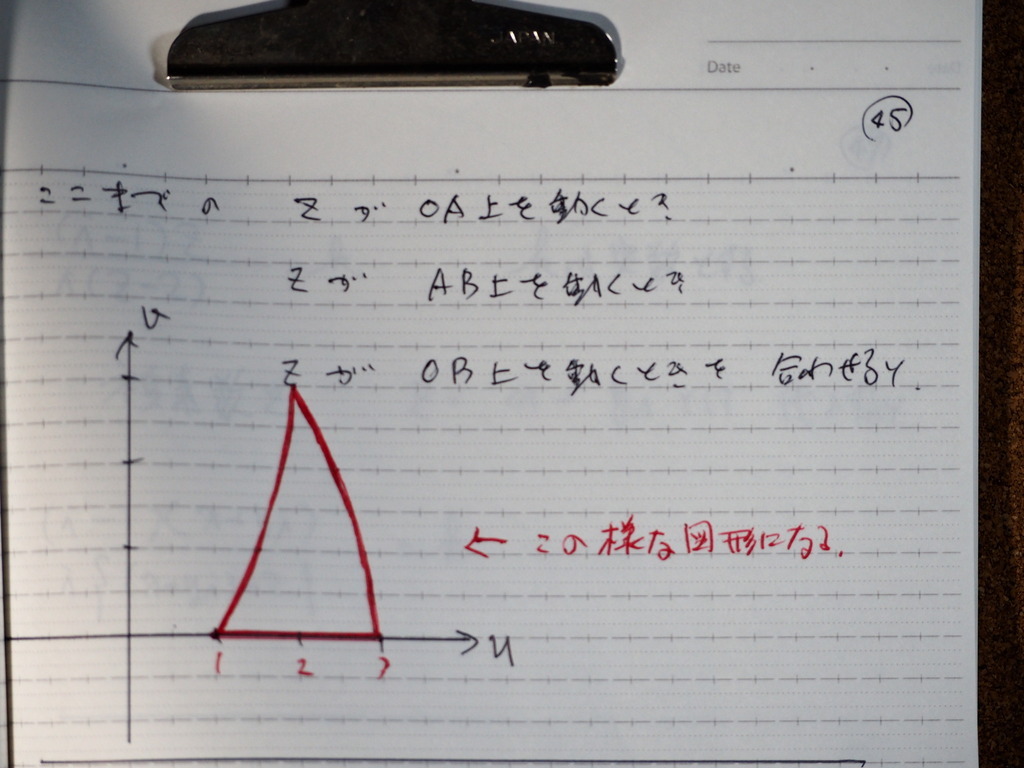 JAPAN
Date
45
ここまでの zが OA上を動くとき
zが AB上を動くとき
v
zが OB上を動くときを 合わせると、
← この様な図形になる。
u
1 2 3